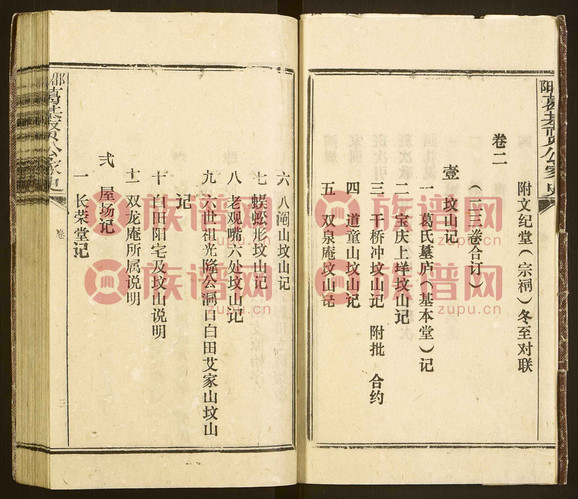 附文纪堂（宗祠）冬至对联
卷二
（二三卷合订）
壹 坟山记
一 葛氏墓庐（基本堂）记
二 宝庆上垟坟山记
三 干桥冲坟山记 附批 合约
四 道童山坟山记
五 双泉庵坟山记
六 八阄山坟山记
七 蜈蚣形坟山记
八 老观嘴六处坟山记
九 六世祖光隆公洞口白田艾家山坟山
记
十 白田阳宅及坟山说明
十一 双龙庵所属说明
弍 屋场记
一 长荣堂记
卷
三
族谱网
zupu.cn
族谱网
zupu.cn
族谱网
zupu.cn
族谱网
zupu.cn